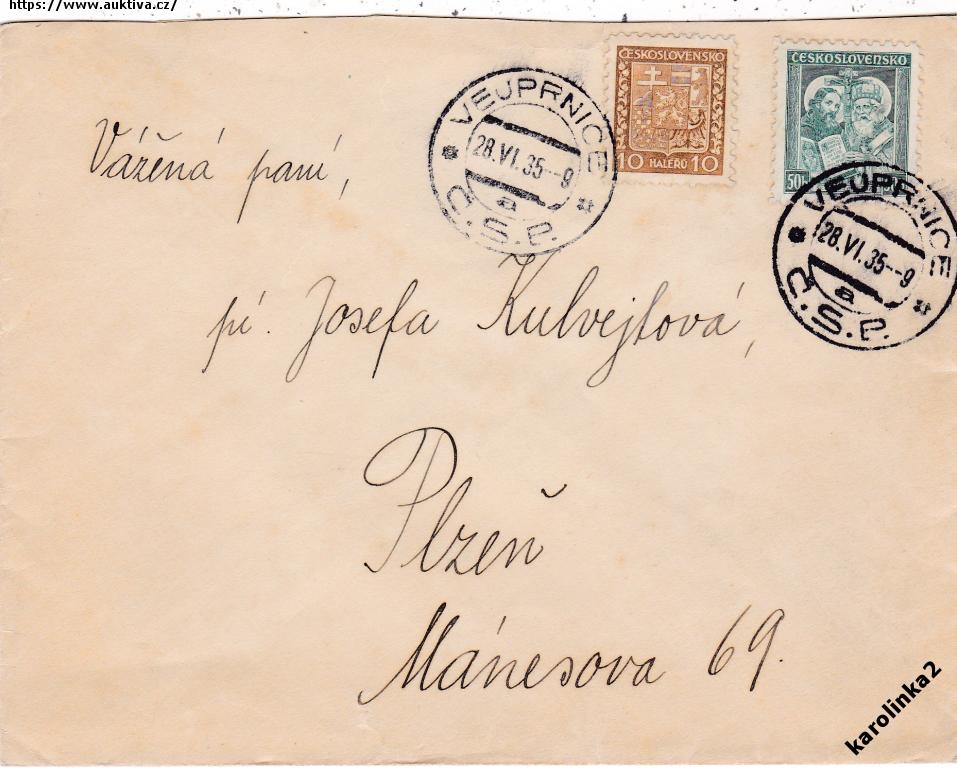 https://www.auktiva.cz/
ČESKOSLOVENSKO
10 HALÉŘŮ 10
ČESKOSLOVENSKO
50h
VEJPRNICE
28.VI.35--9
a
Č.S.P.
VEJPRNICE
28.VI.35--9
a
Č.S.P.
Vážená paní,
pí. Josefa Kulvejtová,
Plzeň
Mánesova 69.
karolinka2